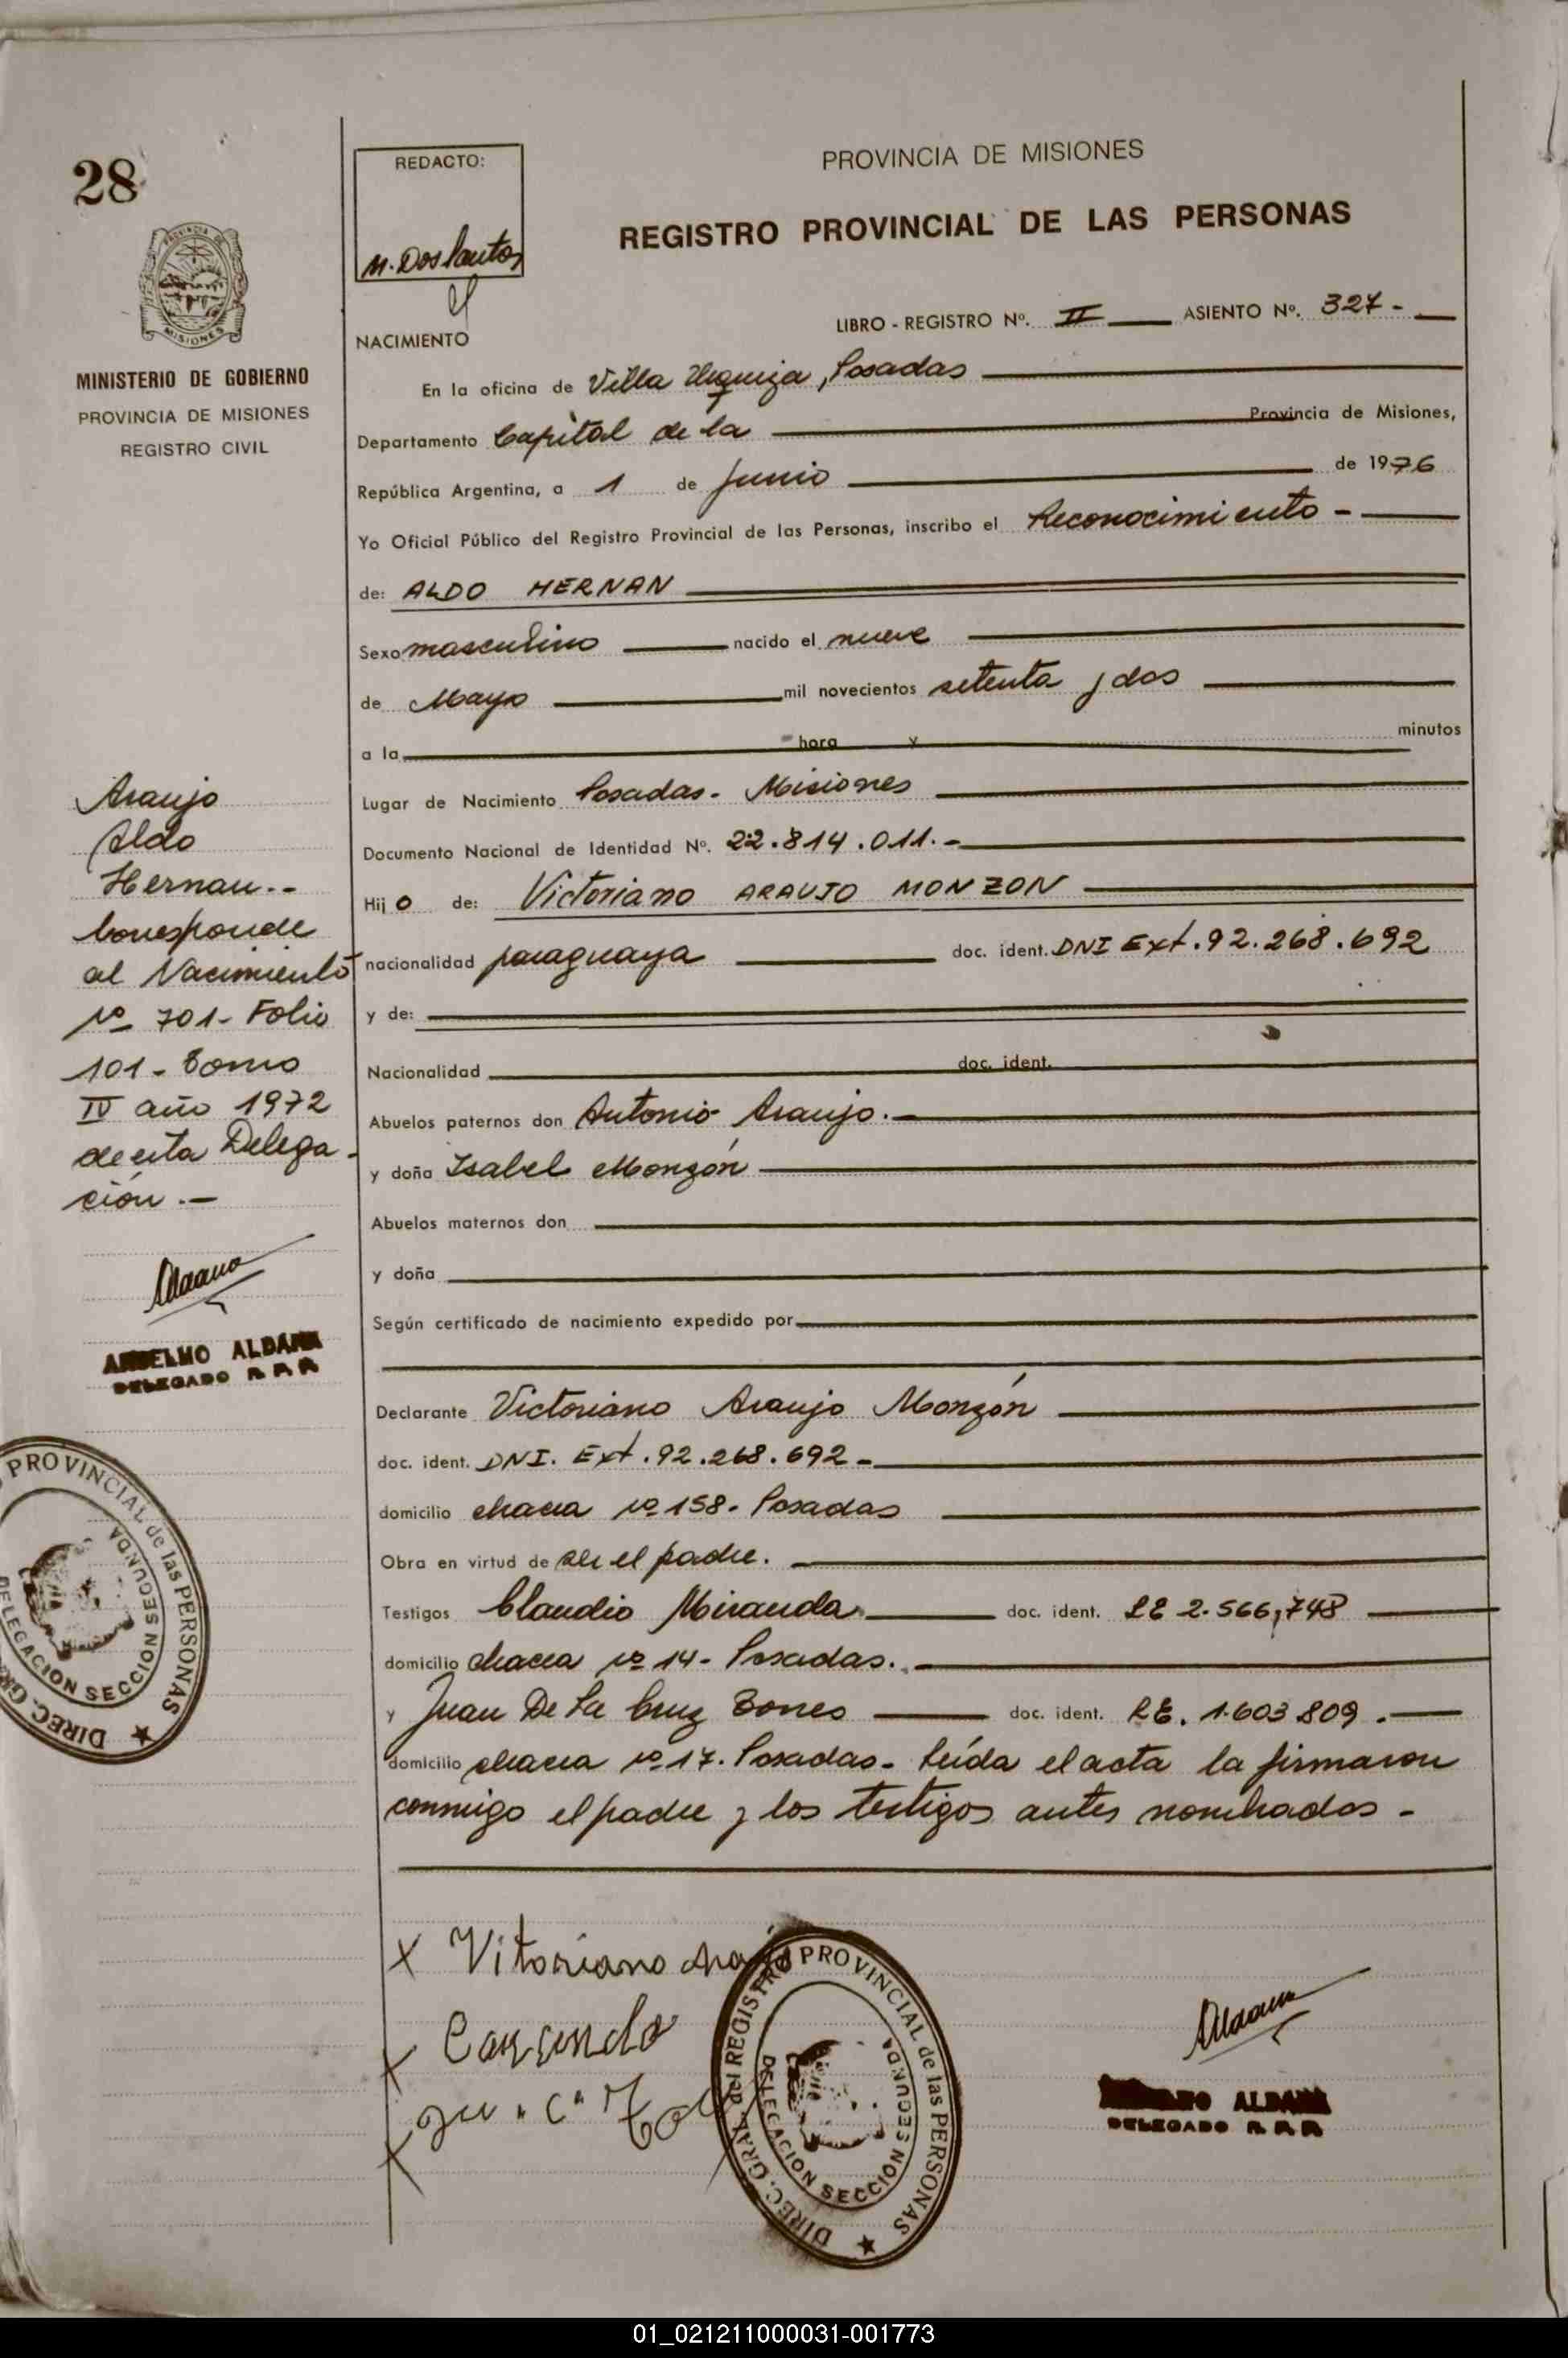 28
REDACTO:
M. Dos Santos
PROVINCIA DE MISIONES
REGISTRO PROVINCIAL DE LAS PERSONAS
PROVINCIA DE
MISIONES
MINISTERIO DE GOBIERNO
PROVINCIA DE MISIONES
REGISTRO CIVIL
LIBRO - REGISTRO Nº. II ASIENTO Nº. 327 -
NACIMIENTO
En la oficina de Villa Urquiza, Posadas
Departamento Capital de la Provincia de Misiones,
República Argentina, a 1 de Junio de 1976
Yo Oficial Público del Registro Provincial de las Personas, inscribo el Reconocimiento -
de: ALDO HERNAN
Sexo masculino nacido el nueve
de Mayo mil novecientos setenta y dos
a la hora y minutos
Lugar de Nacimiento Posadas - Misiones
Documento Nacional de Identidad Nº. 22.814.011.-
Hijo de: Victoriano ARAUJO MONZON
nacionalidad paraguaya doc. ident. DNI Ext. 92.268.692
y de:
Nacionalidad doc. ident.
Abuelos paternos don Antonio Araujo.-
y doña Isabel Monzón
Abuelos maternos don
y doña
Según certificado de nacimiento expedido por
Declarante Victoriano Araujo Monzón
doc. ident. DNI. Ext. 92.268.692 -
domicilio chacra nº 158 - Posadas
Obra en virtud de ser el padre.
Testigos Claudio Miranda doc. ident. LE 2.566,748
domicilio chacra nº 14 - Posadas.
y Juan De La Cruz Torres doc. ident. LE. 1.603.809.
domicilio chacra nº 17. Posadas - Leída el acta la firmaron
conmigo el padre y los testigos antes nombrados -
Araujo
Aldo
Hernan.-
Corresponde
al Nacimiento
nº 701 - Folio
101 - Tomo
IV año 1972
de esta Delega-
ción.-
ANSELMO ALDANA
DELEGADO R. P. P.
DIREC. GRAL. PROVINCIAL de las PERSONAS
DELEGACION SECCION SEGUNDA
X Vitoriano
X
X
DIREC. GRAL. del REGISTRO PROVINCIAL de las PERSONAS
DELEGACION SECCION SEGUNDA
ALDANA
DELEGADO R. P. P.
01_021211000031-001773